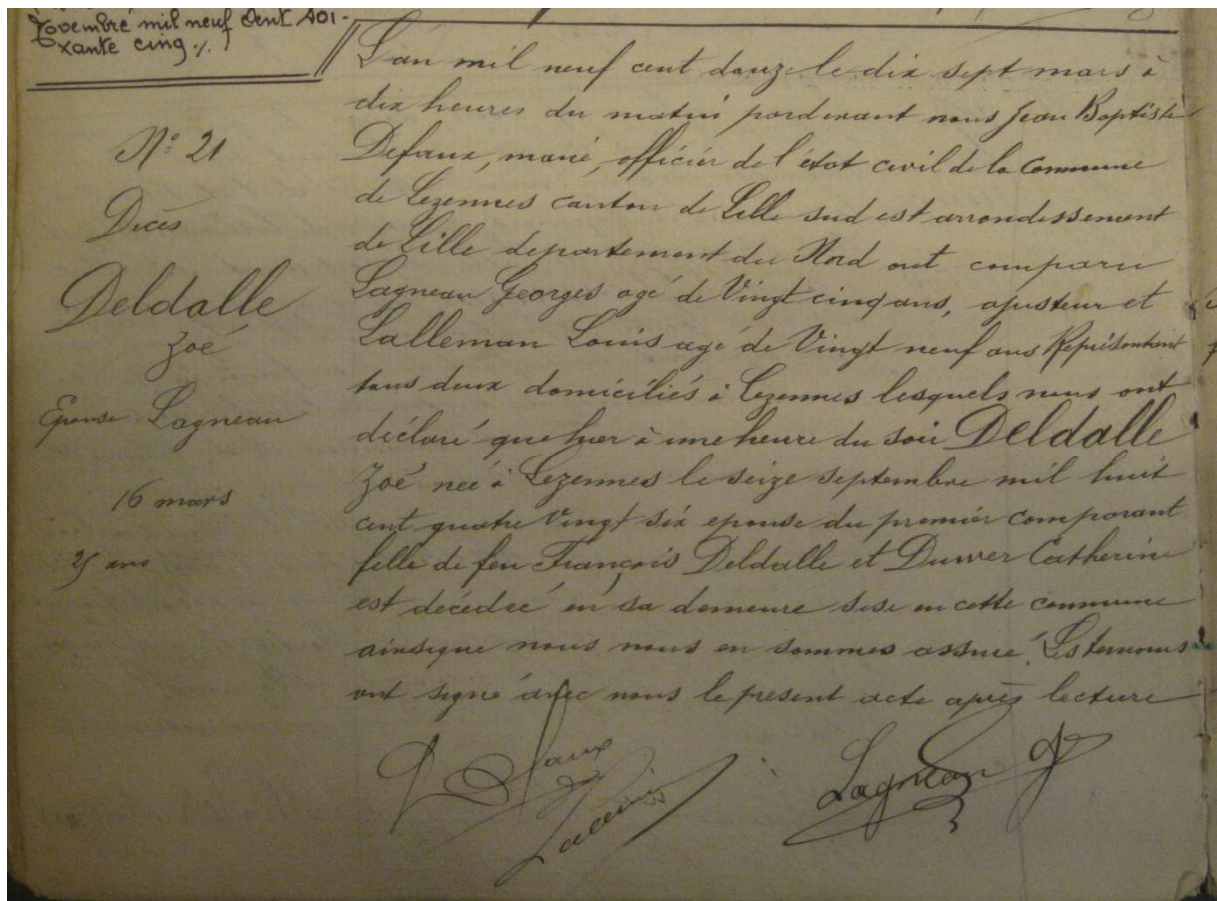 Novembre mil neuf Cent soi-
xante cinq ./.
N° 21
Décès
Deldalle
Zoé
Epouse Lagneau
16 mars
25 ans
L'an mil neuf cent douze le dix sept mars à
dix heures du matin pardevant nous Jean Baptiste
Defaux, maire, officier de l'état civil de la Commune
de Lezennes canton de Lille sud est arrondissement
de Lille département du Nord ont comparu
Lagneau Georges agé de Vingt cinq ans, ajusteur et
Lalleman Louis agé de Vingt neuf ans Représentant
tous deux domiciliés à Lezennes lesquels nous ont
déclaré que hier à une heure du soir Deldalle
Zoé née à Lezennes le seize septembre mil huit
cent quatre Vingt six epouse du premier comparant
fille de feu François Deldalle et Duwer Catherine
est décédée en sa demeure sise en cette commune
ainsi que nous nous en sommes assuré. Les temoins
ont signé avec nous le present acte après lecture
Lagneau G